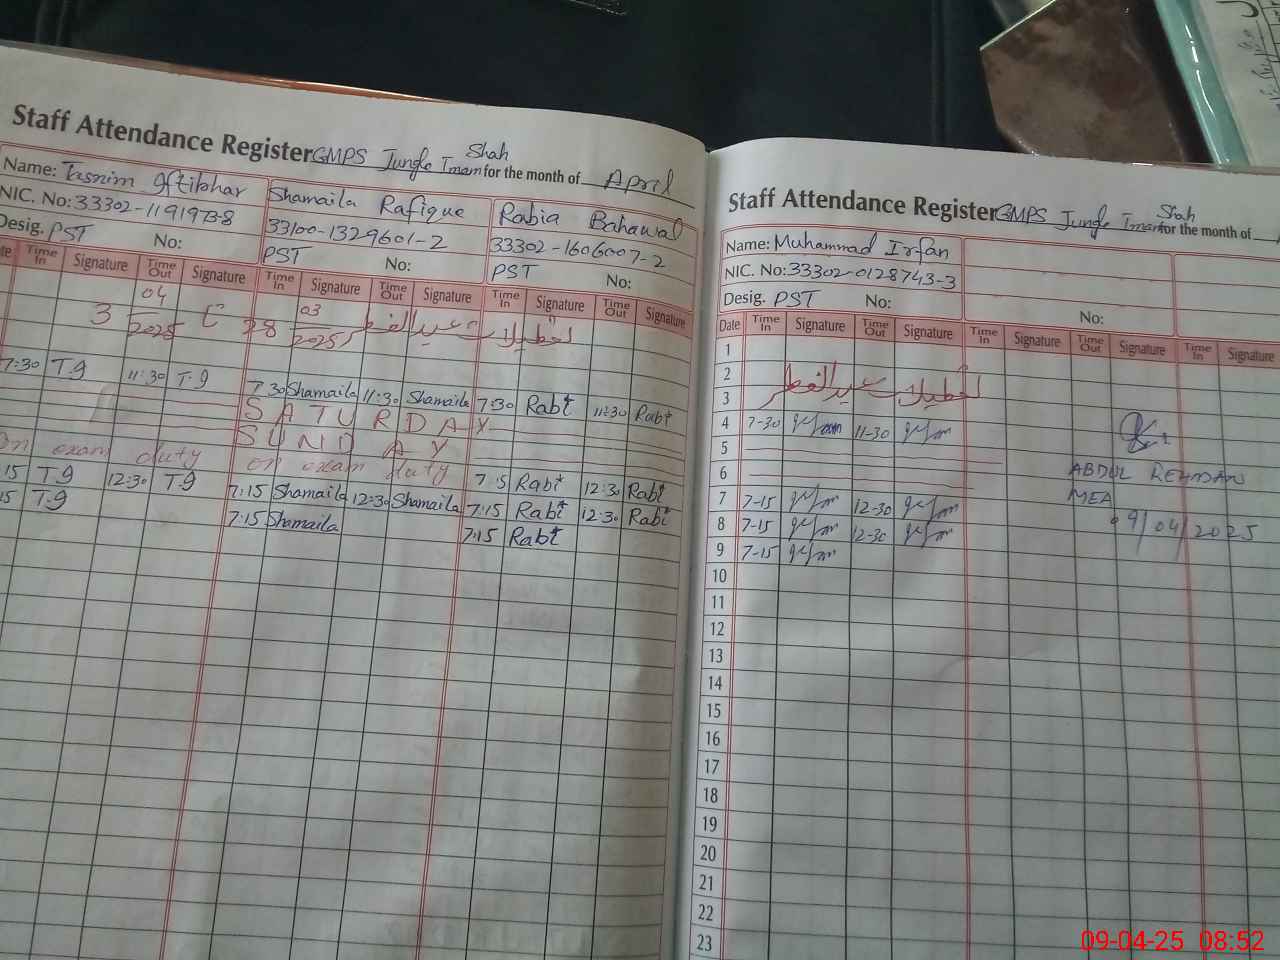 Staff Attendance Register GMPS Jungle Imam Shah for the month of April
Name: Tasnim Iftikhar Shamaila Rafique Rabia Bahawal
NIC. No: 33302-1191973-8 33100-1329601-2 33302-1606007-2
Desig. PST No: PST No: PST No:
Time In Signature Time Out Signature Time In Signature Time Out Signature Time In Signature Time Out Signature
3 04/2025 تا 28 03/2025 تعطیلات عیدالفطر
7:30 T.9 11:30 T.9 7:30 Shamaila 11:30 Shamaila 7:30 Rabi 11:30 Rabi
SATURDAY
SUNDAY
On exam duty on exam duty 7:15 Rabi 12:30 Rabi
15 T9 12:30 T9 7:15 Shamaila 12:30 Shamaila 7:15 Rabi 12:30 Rabi
15 T9 7:15 Shamaila 7:15 Rabi
Staff Attendance Register GMPS Jungle Imam Shah for the month of
Name: Muhammad Irfan
NIC. No: 33302-0128743-3
Desig. PST No: No:
Date Time In Signature Time Out Signature Time In Signature Time Out Signature Time In Signature
1
2 تعطیلات عیدالفطر
3
4 7-30 11-30
5
6
ABDUL REHMAN
MEA
9/04/2025
7 7-15 12-30
8 7-15 12-30
9 7-15
10
11
12
13
14
15
16
17
18
19
20
21
22
23
09-04-25 08:52